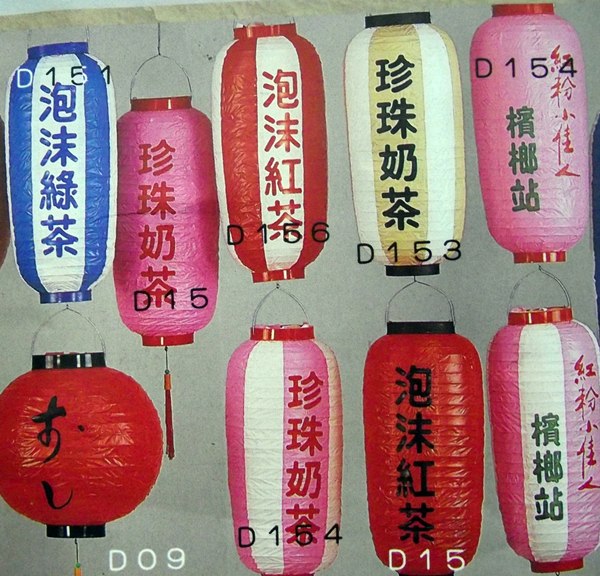 D151
泡沫綠茶
珍珠奶茶
D15
泡沫紅茶
D156
珍珠奶茶
D153
D154
紅粉小佳人
檳榔站
おすし
D09
珍珠奶茶
D154
泡沫紅茶
D15
紅粉小佳人
檳榔站